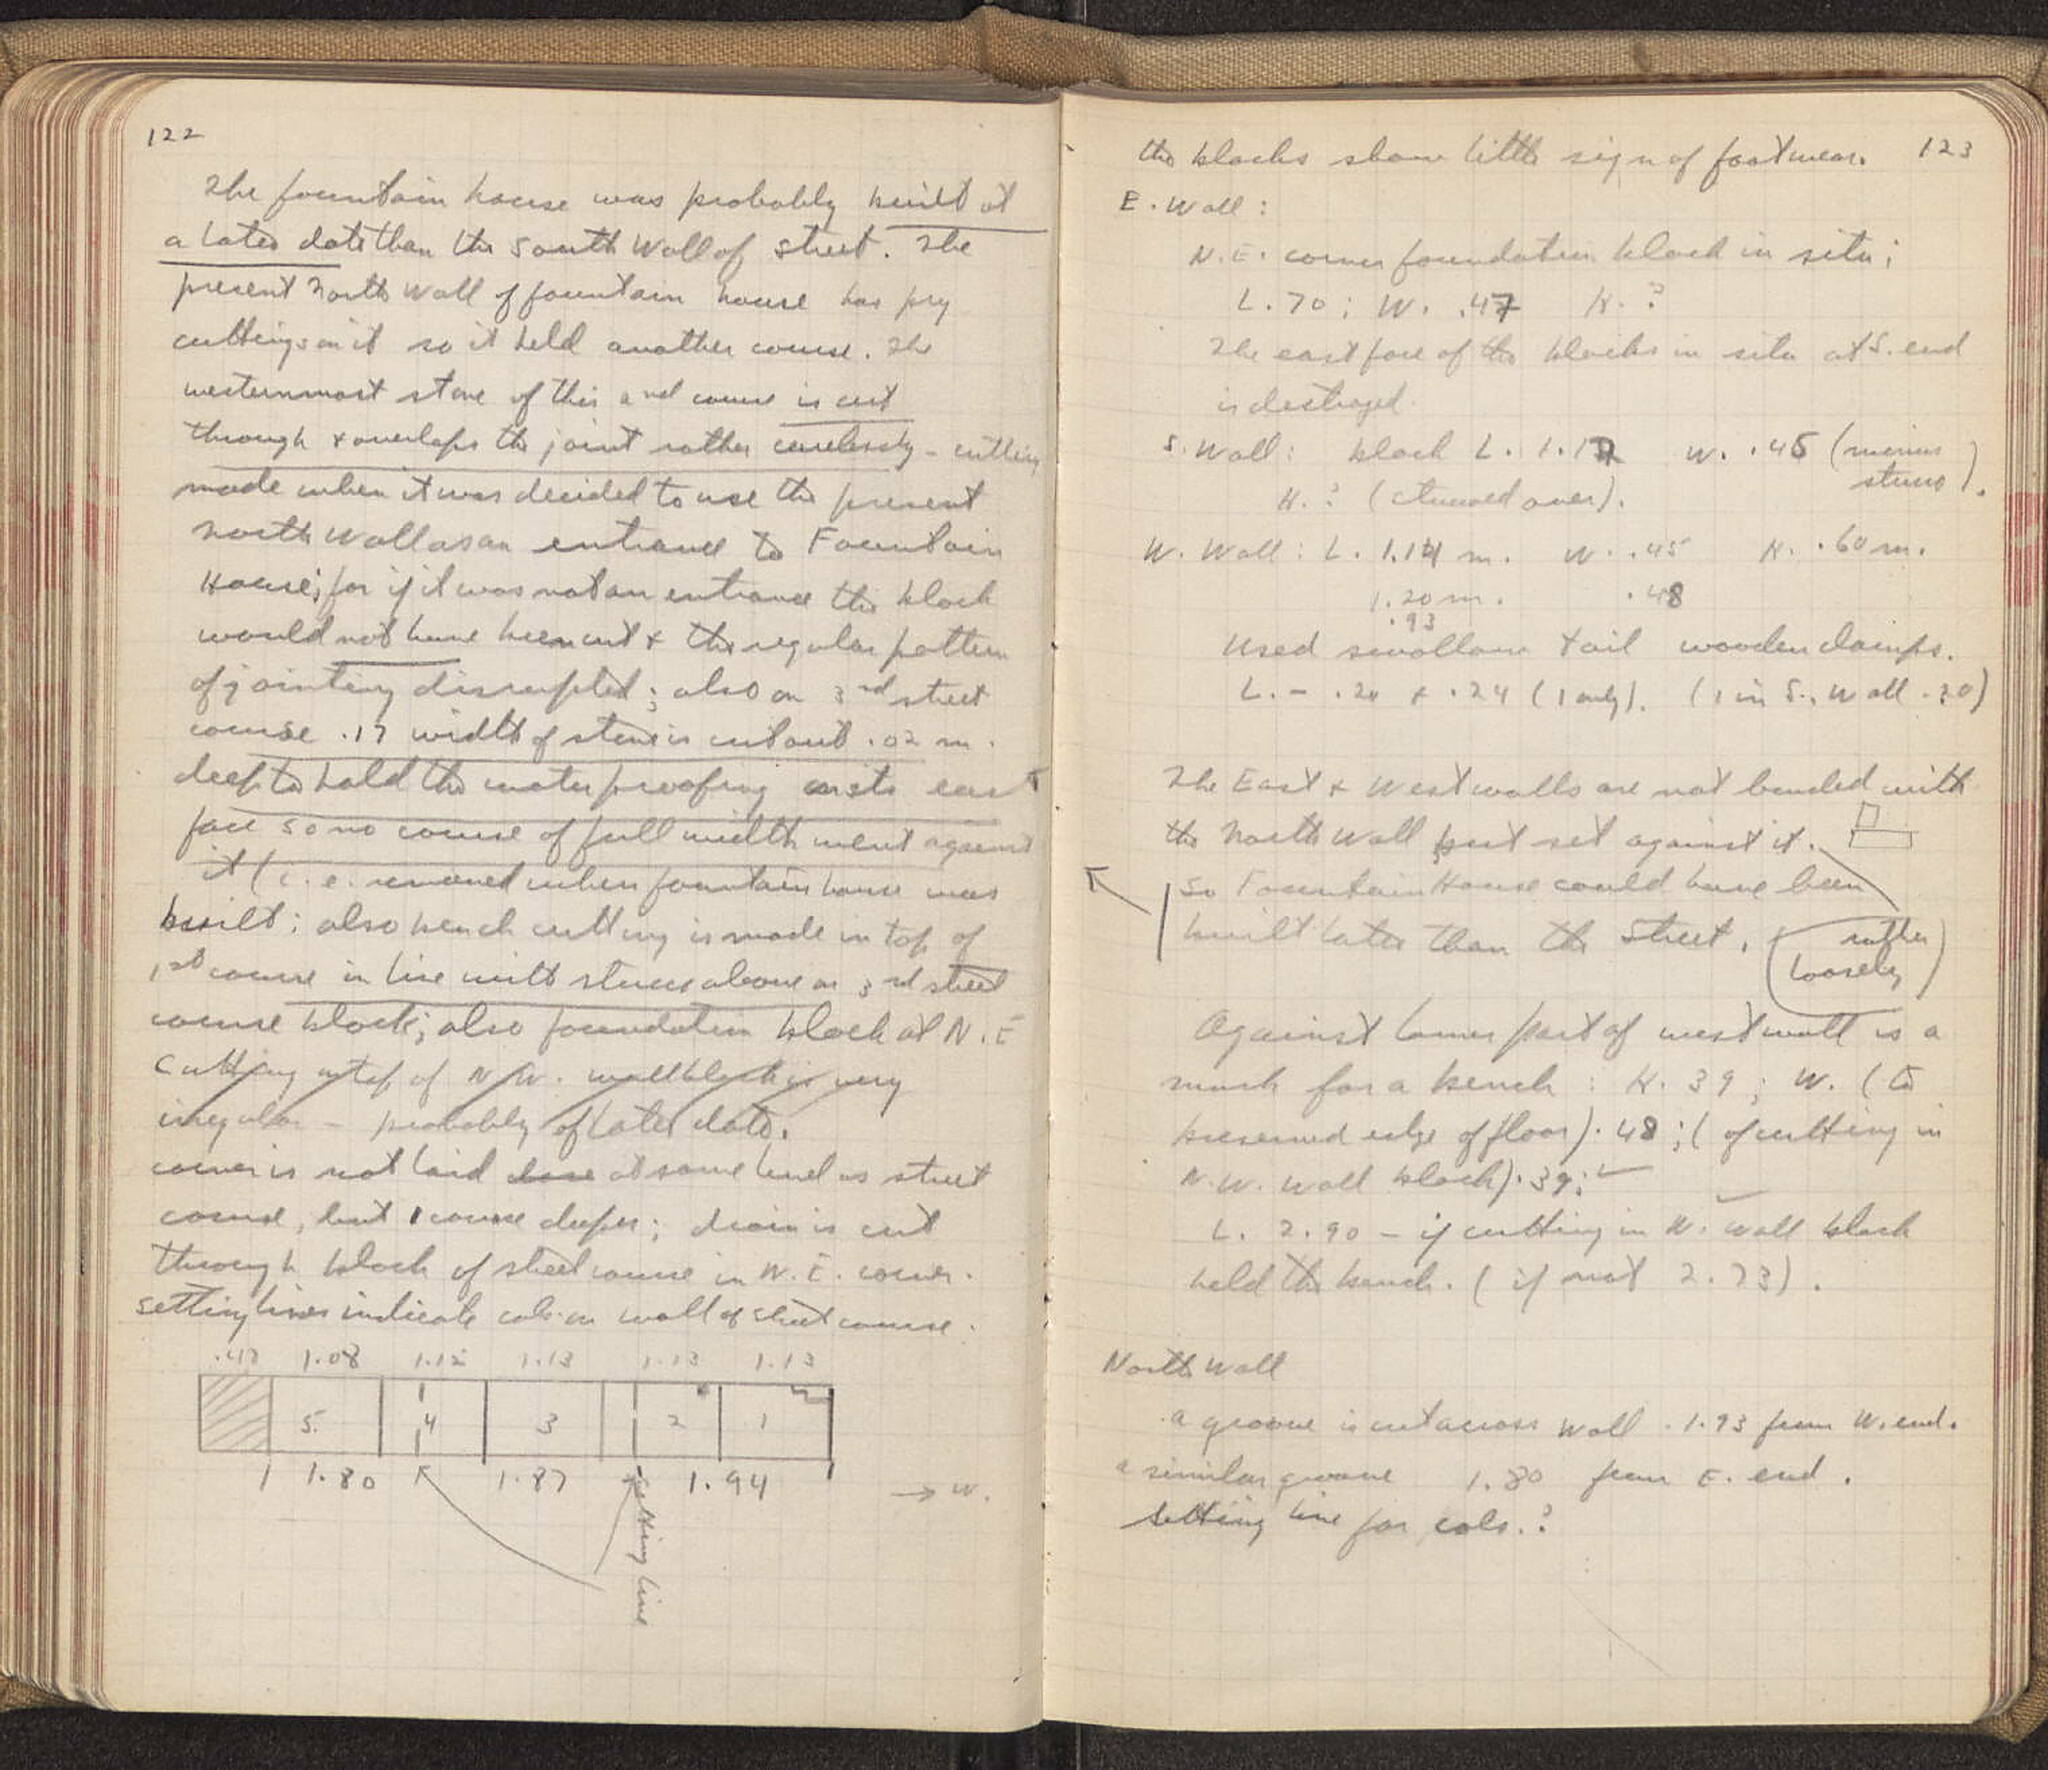 122
The fountain house was probably built at
a later date than the South Wall of Street. The
present North Wall of fountain house has pry
cuttings on it so it held another course. The
westernmost stone of this 2nd course is cut
through & overlaps the joint rather carelessly - cutting
made when it was decided to use the present
north Wall as an entrance to Fountain
House; for if it was not an entrance the block
would not have been cut & the regular pattern
of jointing disrupted; also on 3rd street
course .17 width of stone is cut out .02 m.
deep to hold the waterproofing on its east
face so no course of full width went against
it (i.e. removed when fountain house was
built; also bench cutting is made in top of
1st course in line with stucco above on 3rd street
course block; also foundation block at N.E
Cutting in top of N.W. wall block is very
irregular - probably of later date.
corner is not laid at same level as street
course, but 1 course deeper; drain is cut
through block of street course in N.E. corner.
Setting lines indicate cols. on wall of street course.
1.08 1.12 1.13 1.13 1.13
5. 4 3 2 1
1.80 1.87 1.94 → W.
setting line
the blocks show little sign of footwear. 123
E. Wall:
N.E. corner foundation block in situ;
L. 70; W. .47 H. ?
The east face of the blocks in situ at S. end
is destroyed.
S. Wall: block L. 1.17 W. .45 (minus
stucco).
H. ? (stuccoed over).
W. Wall: L. 1.14 m. W. .45 H. .60 m.
1.20 m. .48
.93
Used swallow tail wooden clamps.
L. - .20 & .24 (1 only). (1 in S. Wall .30)
The East & West walls are not bonded with
the North Wall but set against it.
So Fountain House could have been
built later than the Street.
(rather
loosely)
Against lower part of west wall is a
mark for a bench: H. 39; W. (to
preserved edge of floor) .48; (of cutting in
N.W. Wall block) .39;
L. 2.90 - if cutting in N. Wall block
held the bench. (if not 2.73).
North Wall
a groove is cut across Wall .1.93 from W. end.
a similar groove 1.80 from E. end.
Setting line for cols.?